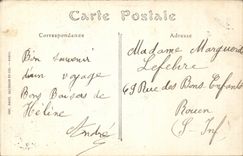 Carte Postale
Correspondance
Adresse
Bon Souvenir
d'un voyage
Bons Baisers de
Héline
André
Madame Marguerite
Lefebvre
69 Rue des Bons Enfants
Rouen
S. Inf